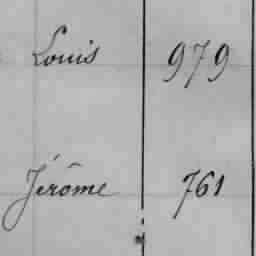 Louis 979
Jérôme 761